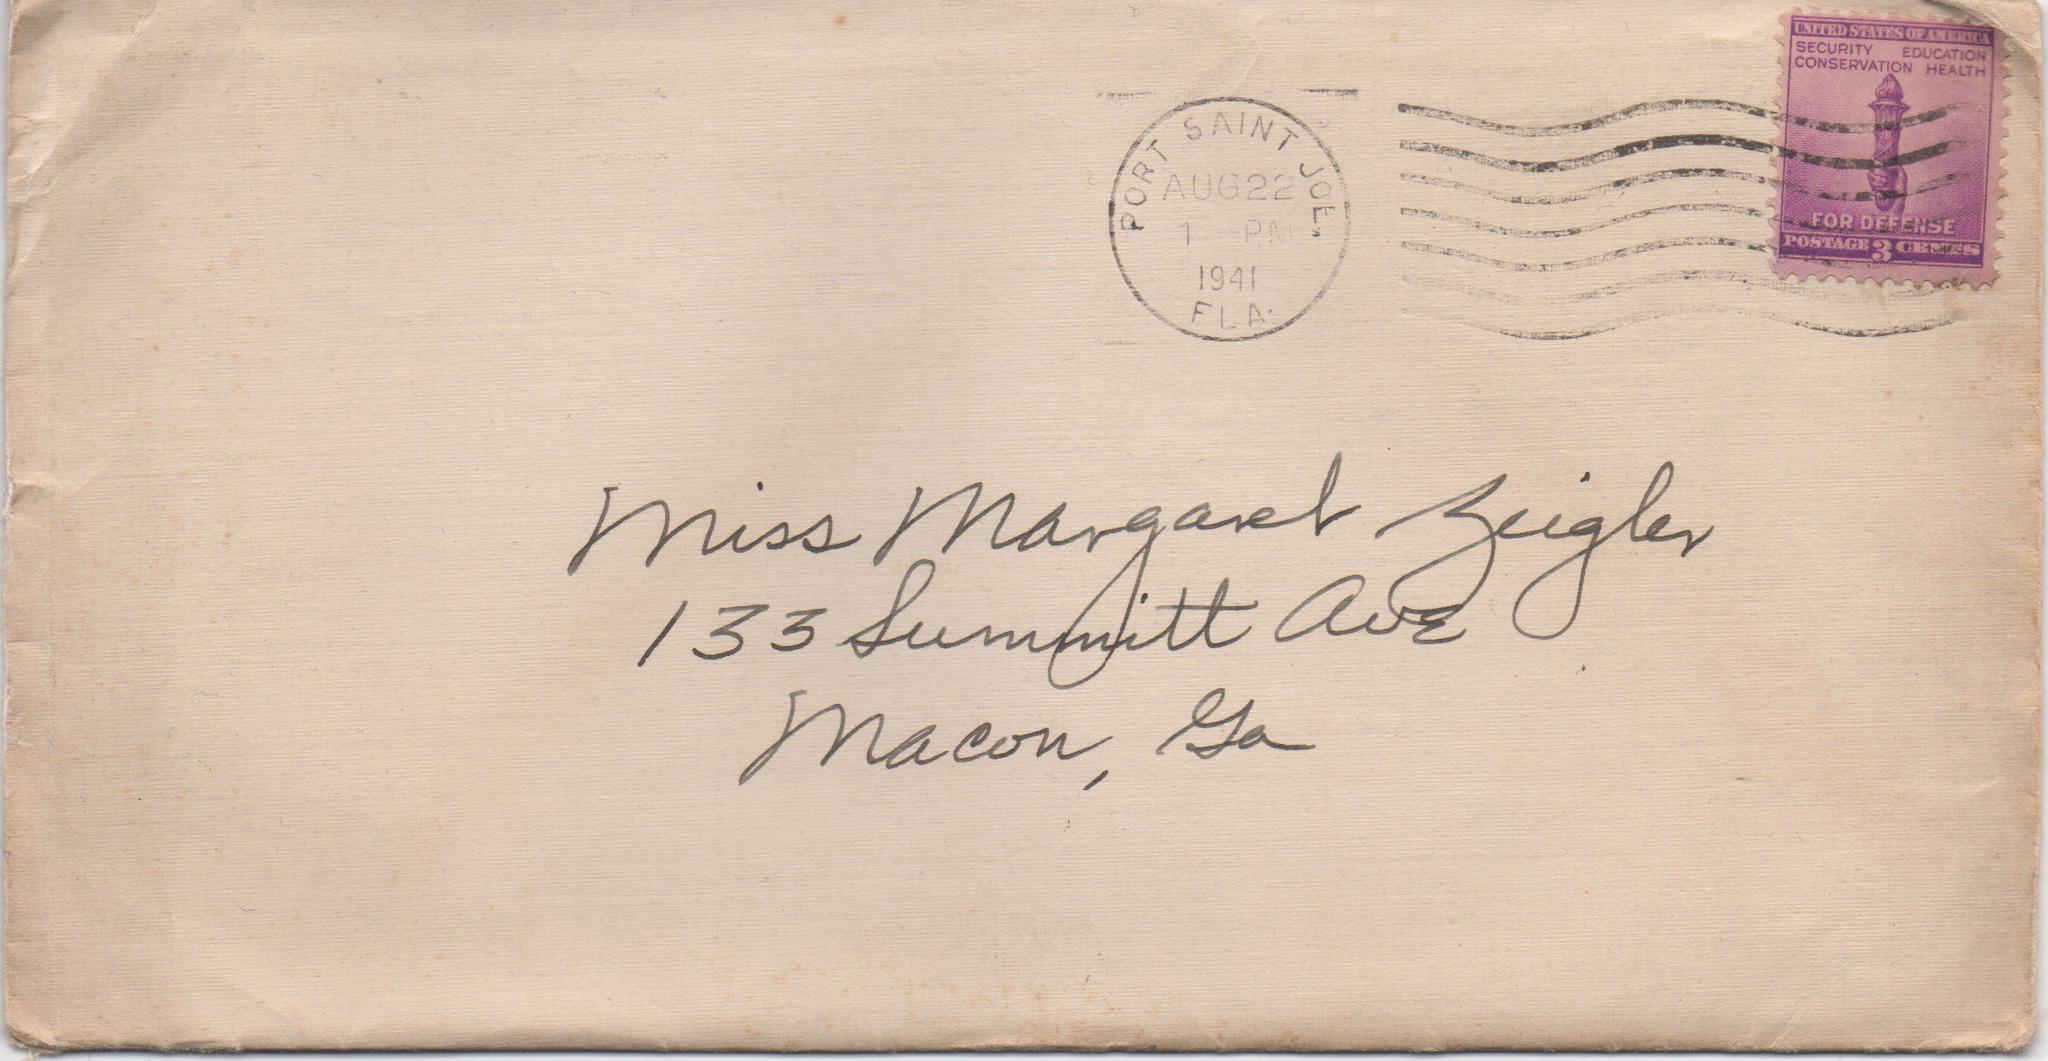 UNITED STATES OF AMERICA
SECURITY EDUCATION
CONSERVATION HEALTH
FOR DEFENSE
POSTAGE 3 CENTS
PORT SAINT JOE,
AUG 22
1 - PM
1941
FLA.
Miss Margaret Zeigler
133 Summitt Ave
Macon, Ga